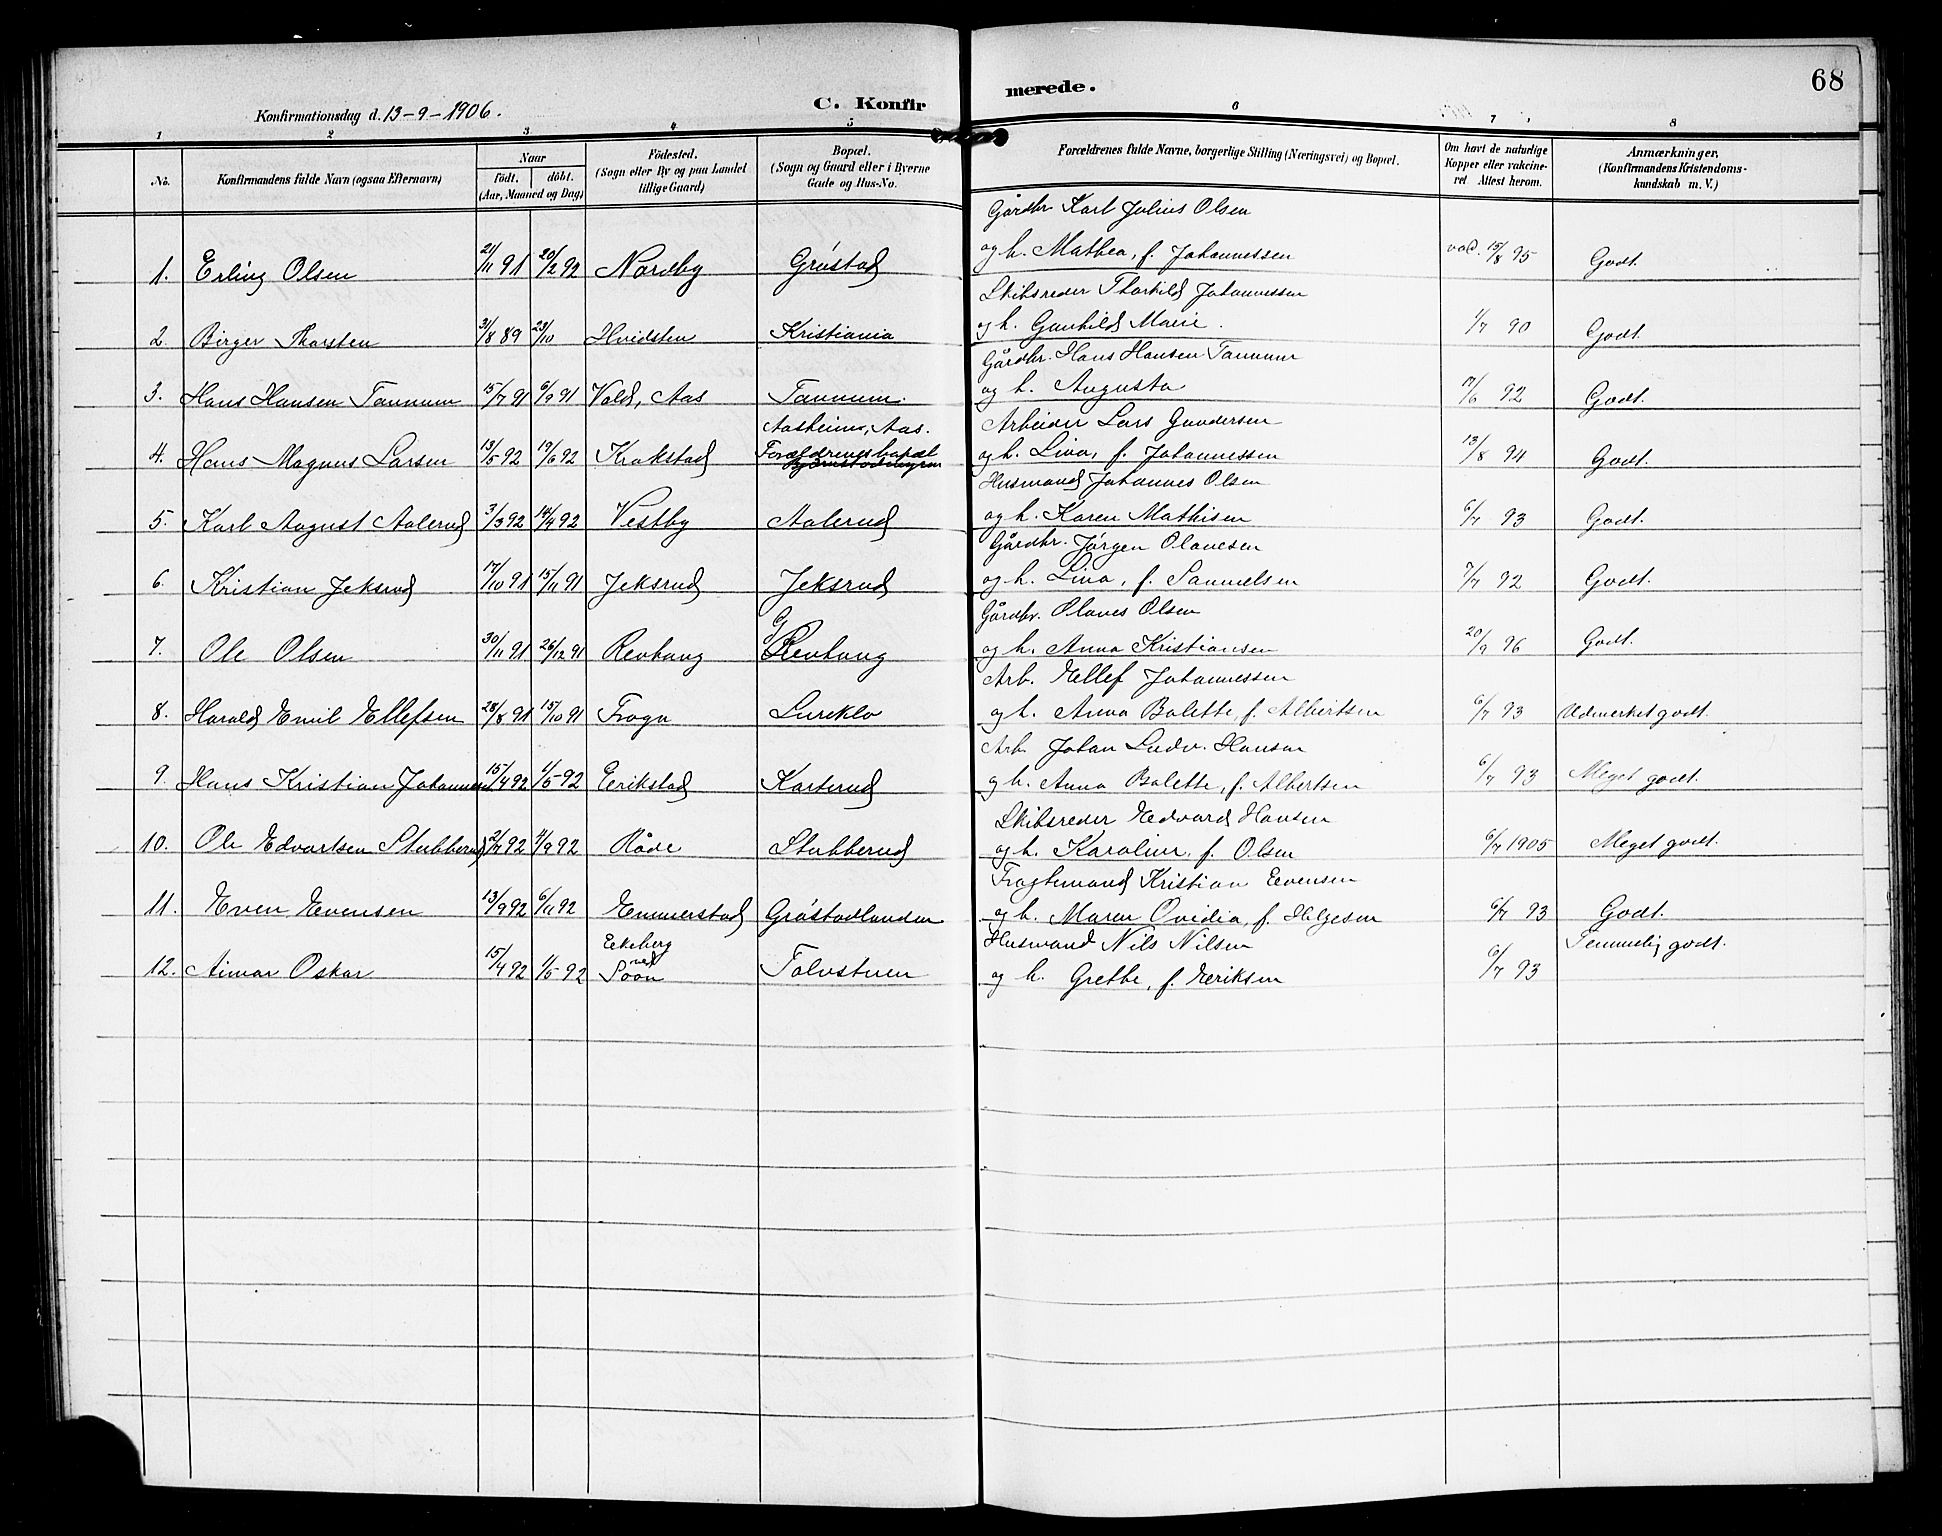 68
C. Konfirmerede.
Konfirmationsdag d. 13-9-1906.
1 2 3 4 5 6 7 8
No. Konfirmandens fulde Navn (ogsaa Efternavn) Naar födt. döbt. (Aar, Maaned og Dag) Födested. (Sogn eller By og paa Landet tillige Gaard) Bopæl. (Sogn og Gaard eller i Byerne Gade og Hus-No. Forældrenes fulde Navne, borgerlige Stilling (Næringsvei) og Bopæl. Om havt de naturlige Kopper eller vakcineret Attest herom. Anmærkninger. (Konfirmandens Kristendomskundskab m. V.)
Gårdbr Karl Julius Olsen
1. Erling Olsen 21/11 91 20/2 92 Nordby Gröstad og h. Mathea, f. Johannessen 15/8 95 Godt.
Skibsreder Thorkild Johannessen
2. Birger Thorsten 31/8 89 23/10 Hvidsten Kristiania og h. Gunhild Marie. 1/7 90 Godt.
Gårdbr. Hans Hansen Tannum
3. Hans Hansen Tannum 15/7 91 6/9 91 Vold, Aas Tannum. og h. Augusta 17/6 92 Godt.
Aasheim, Aas. Arbeider Lars Gundersen
4. Hans Magnus Larsen 13/5 92 19/6 92 Krokstad Forældrenes bopæl og h. Lina, f. Johannessen 13/8 94 Godt.
Husmand Johannes Olsen
5. Karl August Aalerud 3/3 92 14/4 92 Vestby Aalerud og h. Karen Mathisen 6/7 93 Godt.
Gårdbr. Jørgen Olavesen
6. Kristian Jeksrud 17/10 91 15/11 91 Jeksrud Jeksrud og h. Lina, f. Samuelsen 7/7 92 Godt.
Gårdbr. Olaves Olsen
7. Ole Olsen 30/11 91 26/12 91 Revhaug Revhaug og h. Anna Kristiansen 20/9 96 Godt.
Arb. Ellef Johannessen
8. Harald Emil Ellefsen 28/8 91 15/10 91 Frogn Lureklo og h. Anna Bolette, f. Albertsen 6/7 93 Udmerket godt.
Arb. Johan Ludv. Hansen
9. Hans Kristian Johannes 15/4 92 1/5 92 Eerikstad Karterud og h. Anna Bolette, f. Albertsen 6/7 93 Meget godt.
Skibsreder Edvard Hansen
10. Ole Edvartsen Stubberud 2/7 92 4/9 92 Råde Stubberud og h. Karoline, f. Olsen 6/7 1905 Meget godt.
Fragtemand Kristian Evensen
11. Even Evensen 13/9 92 6/11 92 Emmerstad Gröstadlanden og h. Maren Ovidia, f. Helgesen 6/7 93 Godt.
Ekeberg Husmand Nils Nilsen Temmelig godt.
12. Aimar Oskar 15/4 92 1/5 92 ved Soon Tolvstuen og h. Grethe, f. Eeriksen 6/7 93